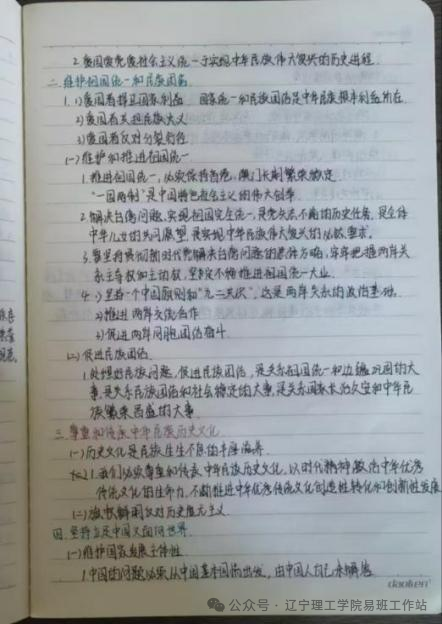 2.爱国爱党爱社会主义统一于实现中华民族伟大复兴的历史进程
二.维护祖国统一和民族团结
1.1)爱国者捍卫国家利益 国家统一和民族团结是中华民族根本利益所在
2)爱国者关担民族大义
3)爱国者反对分裂行径
(一)维护和推进祖国统一
1.推进祖国统一,必须保持香港,澳门长期繁荣稳定
"一国两制"是中国特色社会主义的伟大创举
2.解决台湾问题、实现祖国完全统一,是党矢志不渝的历史任务,是全体
中华儿女的共同愿望,是实现中华民族伟大复兴的必然要求。
3.要坚持贯彻新时代党解决台湾问题的总体方略,牢牢把握两岸关
系主导权和主动权,坚定不移推进祖国统一大业
4.1)坚持一个中国原则和"九二共识",这是两岸关系的政治基础
2)推进两岸交流合作
3)促进两岸同胞团结奋斗
(二)促进民族团结
1.处理好民族问题、促进民族团结,是关系祖国统一和边疆巩固的大
事,是关系民族团结和社会稳定的大事,是关系国家长治久安和中华民
族繁荣昌盛的大事
三.尊重和传承中华民族历史文化
(一)历史文化是民族生生不息的丰厚滋养
1.我们必须尊重和传承中华民族历史文化,以时代精神激活中华优秀
传统文化的生命力,不断推进中华优秀传统文化创造性转化和创新性发展
(二)旗帜鲜明反对历史虚无主义
四.坚持立足中国又面向世界
(一)维护国家发展主体性
1.中国的问题必须从中国基本国情出发,由中国人自己来解答
daolien
公众号·辽宁理工学院易班工作站